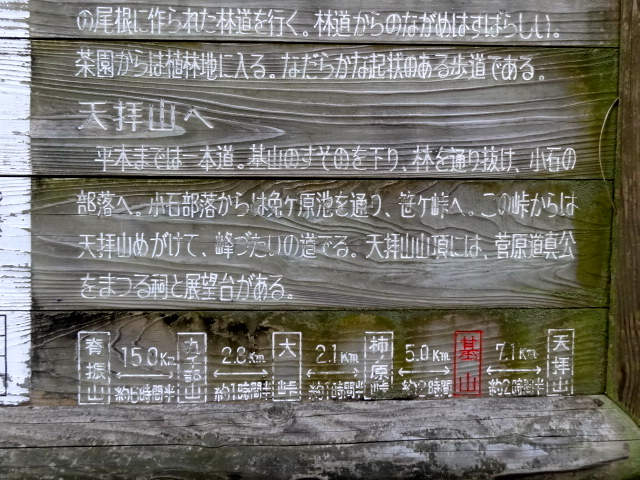 の尾根に作られた林道を行く。林道からのながめはすばらしい。
茶園からは植林地に入る。なだらかな起伏のある歩道である。
天拝山へ
平木までは一本道。基山のすそのを下り、林を通り抜け、小石の
部落へ。小石部落からは兎ケ原池を通り、笹ケ峠へ。この峠からは
天拝山めがけて、峰づたいの道でる。天拝山山頂には、菅原道真公
をまつる祠と展望台がある。
脊振山 15.0Km 約6時間半 九千部山 2.8Km 約1時間半 大峠 2.1Km 約1時間半 柿ノ原峠 5.0Km 約2時間 基山 7.1Km 約2時間半 天拝山